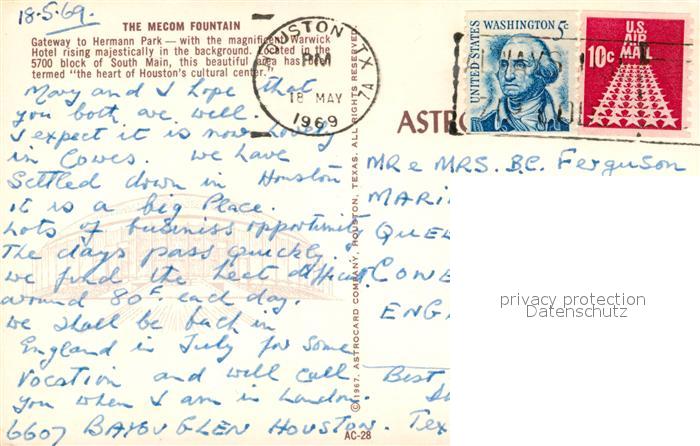 18-5-69.
THE MECOM FOUNTAIN
Gateway to Hermann Park — with the magnificent Warwick
Hotel rising majestically in the background. Located in the
5700 block of South Main, this beautiful area has
termed "the heart of Houston's cultural center."
Mary and I hope that
you both are well.
I expect it is now lovely
in Cowes. We have
settled down in Houston
it is a big Place.
Lots of business opportunity
The days pass quickly.
we find the heat difficult
around 80 F. each day.
we shall be back in
England in July for some
vocation and will call
you when I am in London.
6607 BAYOU GLEN HOUSTON. Tex
HOUSTON, TX
PM
18 MAY
1969
77A
UNITED STATES
WASHINGTON 5c
U.S.
AIR
MAIL
10c
© 1967, ASTROCARD COMPANY, HOUSTON, TEXAS. ALL RIGHTS RESERVED.
ASTRO
MR e MRS. B.C. Ferguson
MARI
QUE
COWE
ENG
Best
AC-28
privacy protection
Datenschutz